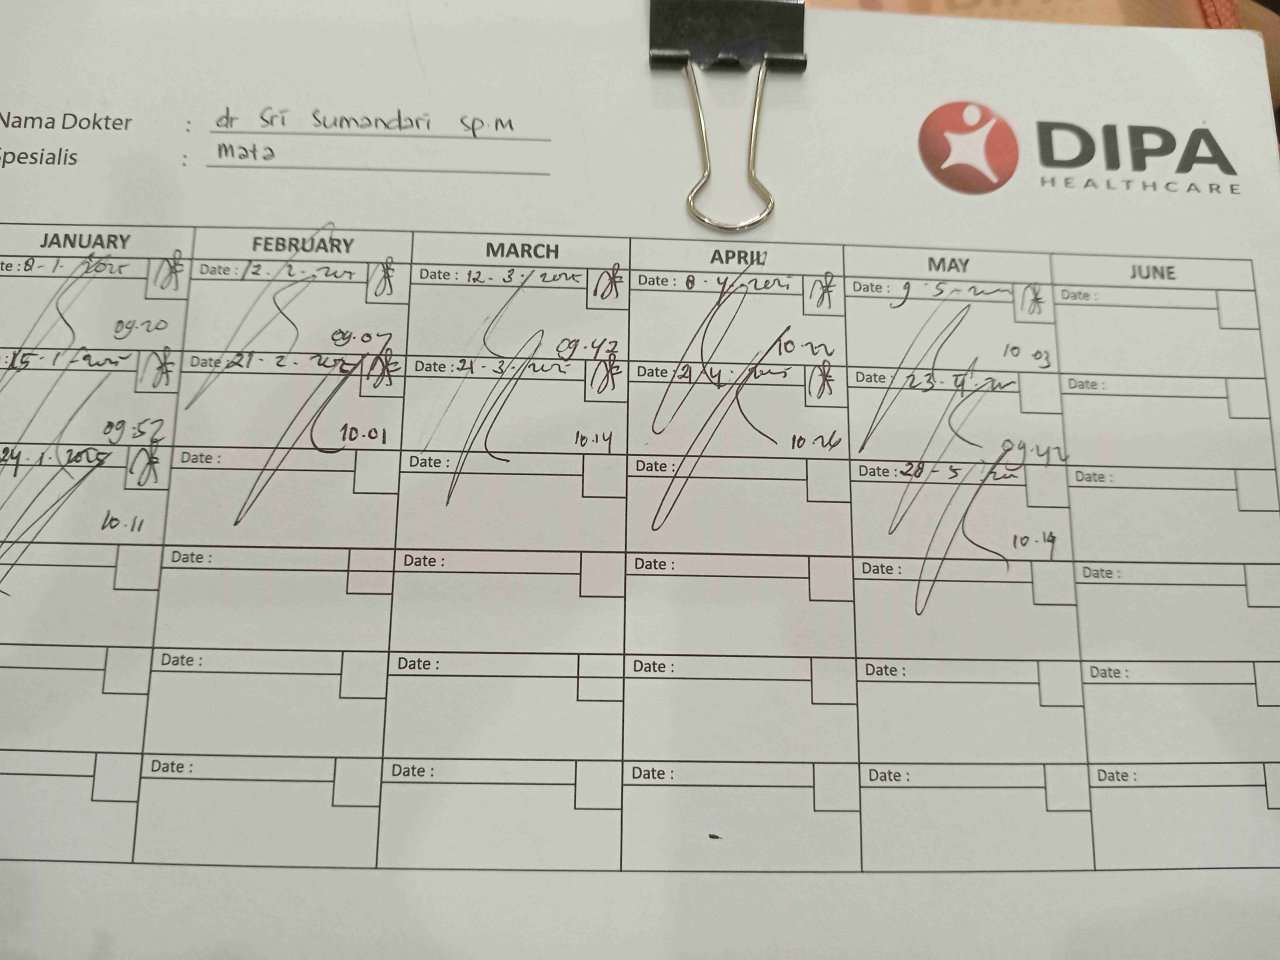 Nama Dokter : dr Sri Sumandari sp.M
Spesialis : Mata
DIPA
HEALTHCARE
JANUARY FEBRUARY MARCH APRIL MAY JUNE
te : 8-1-2025 Date : 12-2- Date : 12-3-2025 Date : 8-4-2025 Date : 9-5- Date :
09.20 09.07 09.42 10.22 10 03
: 15-1- Date : 21-2- Date : 21-3- Date : 21-4- Date : 23- Date :
09.52 10.01 10.14 10.26 09.42
24.1.2025 Date : Date : Date : Date : 28-5- Date :
10.11 10.14
Date : Date : Date : Date : Date :
Date : Date : Date : Date : Date :
Date : Date : Date : Date : Date :